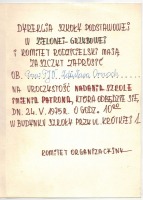 DYREKCJA SZKOŁY PODSTAWOWEJ
W ZIELONEJ-GRZYBOWEJ
I KOMITET RODZICIELSKI MAJĄ
ZASZCZYT ZAPROSIĆ
OB.
NA UROCZYSTOŚĆ NADANIA SZKOLE
IMIENIA PATRONA, KTÓRA ODBĘDZIE SIĘ
DN. 24.V.1975R. O GODZ. 10
W BUDYNKU SZKOŁY PRZY UL. KRÓTKIEJ 1.
KOMITET ORGANIZACYJNY